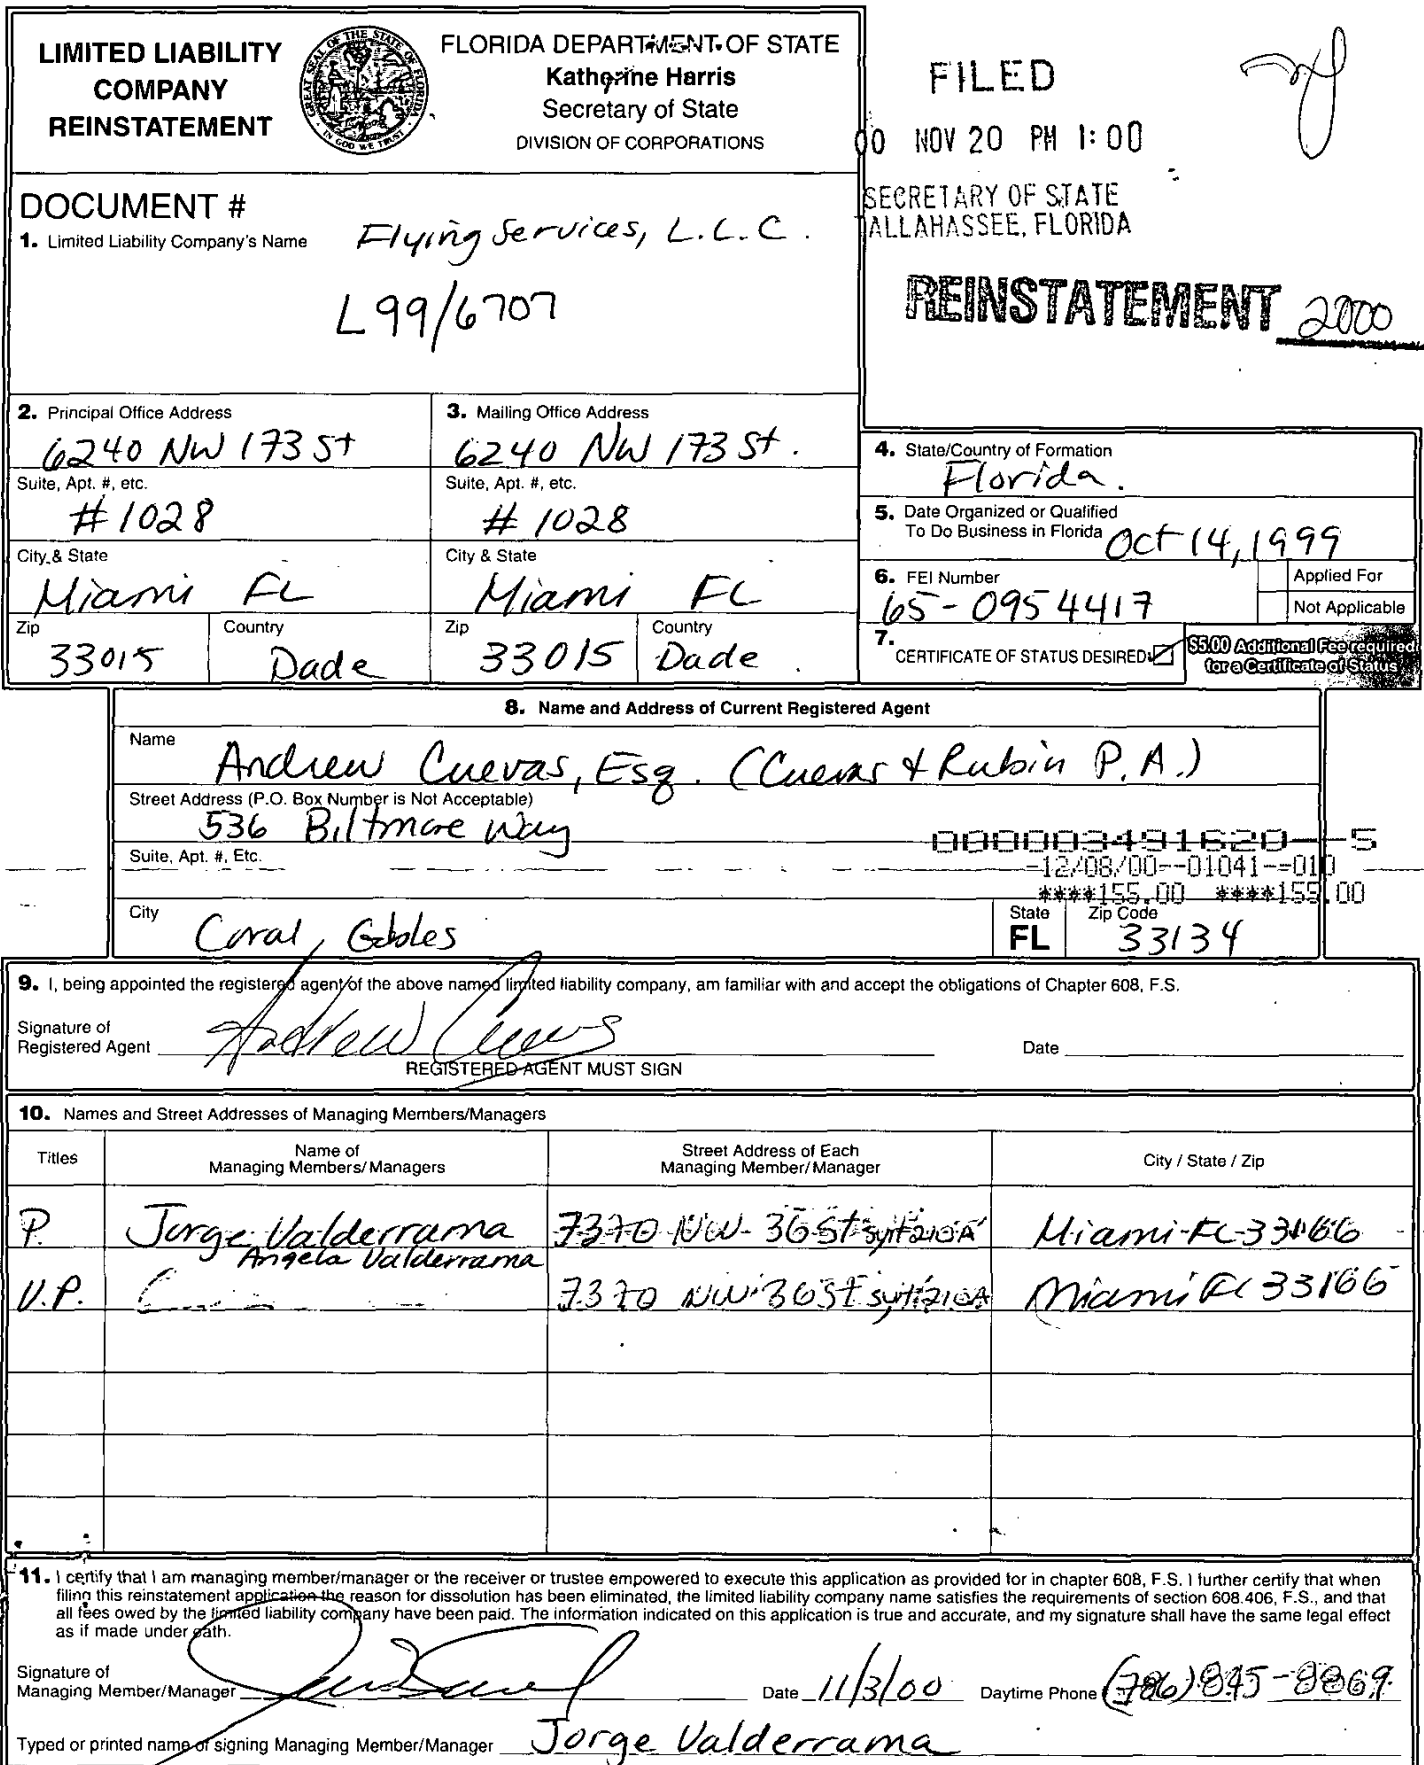 LIMITED LIABILITY
COMPANY
REINSTATEMENT
GREAT SEAL OF THE STATE OF FLORIDA
IN GOD WE TRUST
FLORIDA DEPARTMENT OF STATE
Katherine Harris
Secretary of State
DIVISION OF CORPORATIONS
FILED
00 NOV 20 PM 1:00
SECRETARY OF STATE
ALLAHASSEE, FLORIDA
REINSTATEMENT 2000
DOCUMENT #
1. Limited Liability Company's Name Flying Services, L.L.C.
L99/6707
2. Principal Office Address
6240 NW 173 St
Suite, Apt. #, etc.
#1028
City & State
Miami FL
Zip Country
33015 Dade
3. Mailing Office Address
6240 NW 173 St.
Suite, Apt. #, etc.
#1028
City & State
Miami FL
Zip Country
33015 Dade
4. State/Country of Formation
Florida.
5. Date Organized or Qualified
To Do Business in Florida Oct 14, 1999
6. FEI Number
65-0954417
Applied For
Not Applicable
7. CERTIFICATE OF STATUS DESIRED
$5.00 Additional Fee required
for a Certificate of Status
8. Name and Address of Current Registered Agent
Name
Andrew Cuevas, Esq. (Cuevas & Rubin P.A.)
Street Address (P.O. Box Number is Not Acceptable)
536 Biltmore Way
000003491620--5
Suite, Apt. #, Etc.
-12/08/00--01041--010
****155.00 ****155.00
City State Zip Code
Coral, Gables FL 33134
9. I, being appointed the registered agent of the above named limited liability company, am familiar with and accept the obligations of Chapter 608, F.S.
Signature of
Registered Agent Andrew Cuevas Date
REGISTERED AGENT MUST SIGN
10. Names and Street Addresses of Managing Members/Managers
Titles
Name of
Managing Members/Managers
Street Address of Each
Managing Member/Manager
City / State / Zip
P. Jorge Valderrama 7370 NW 36 St 210A Miami-FL-33166
Angela Valderrama
V.P. 7370 NW 36 St 210A Miami FL 33166
11. I certify that I am managing member/manager or the receiver or trustee empowered to execute this application as provided for in chapter 608, F.S. I further certify that when
filing this reinstatement application the reason for dissolution has been eliminated, the limited liability company name satisfies the requirements of section 608.406, F.S., and that
all fees owed by the limited liability company have been paid. The information indicated on this application is true and accurate, and my signature shall have the same legal effect
as if made under oath.
Signature of
Managing Member/Manager Date 11/3/00 Daytime Phone (786) 845-8869
Typed or printed name of signing Managing Member/Manager Jorge Valderrama